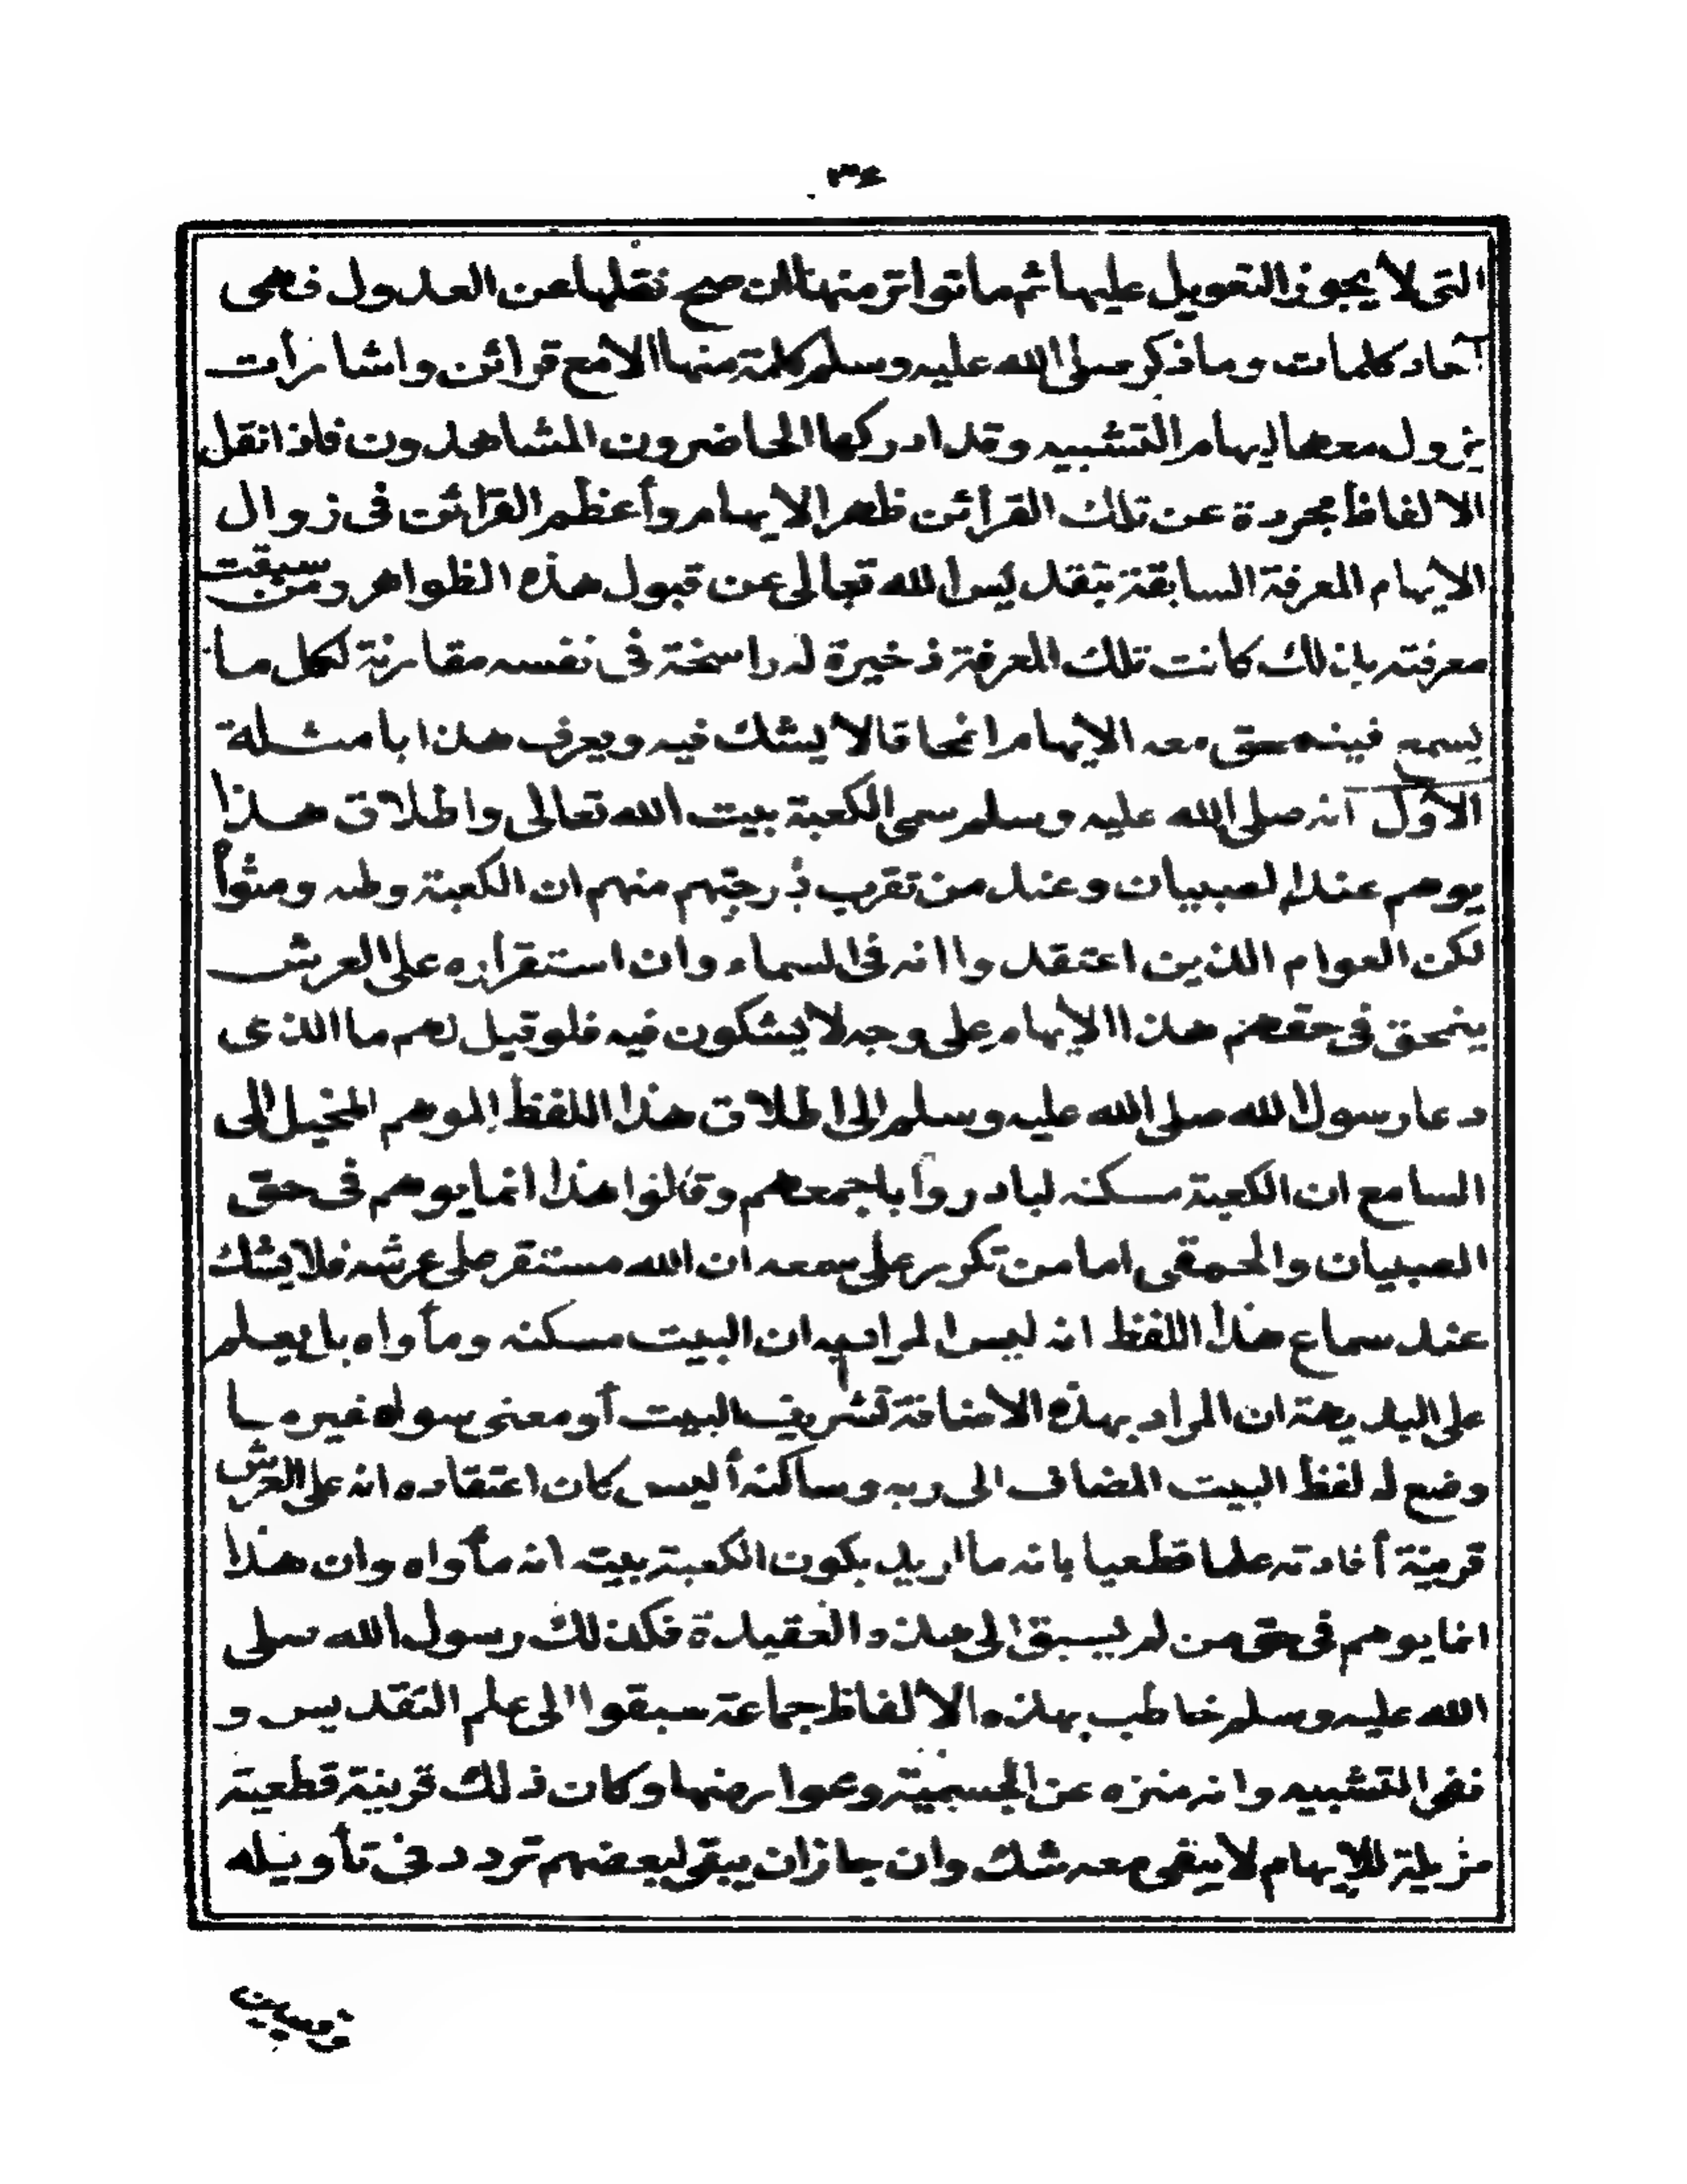 ٣٤
التى لا يجوز التعويل عليها ثم ما تواتر منها ان صح نقلها عن العدول فهى
آحاد كلمات وما ذكر صلى الله عليه وسلم كلمة منها الا مع قرائن واشارات
يزول معها ايهام التشبيه وقد ادركها الحاضرون المشاهدون فاذا نقل
الالفاظ مجردة عن تلك القرائن ظهر الايهام وأعظم القرائن فى زوال
الايهام المعرفة السابقة بتقديس الله تعالى عن قبول هذه الظواهر ومن سبقت
معرفته بذلك كانت تلك المعرفة ذخيرة له راسخة فى نفسه مقارنة لكل ما
يسمع فينمحق معه الايهام انمحاقا لا يشك فيه ويعرف هذا بامثلة
الأول انه صلى الله عليه وسلم سمى الكعبة بيت الله تعالى واطلاق هذا
يوهم عند الصبيان وعند من تقرب درجتهم منهم ان الكعبة وطنه ومثوأ
لكن العوام الذين اعتقدوا انه فى السماء وان استقراره على العرش
ينمحق فى حقهم هذا الايهام على وجه لا يشكون فيه فلو قيل لهم ما الذى
دعا رسول الله صلى الله عليه وسلم الى اطلاق هذا اللفظ الموهم المخيل الى
السامع ان الكعبة مسكنه لبادروا باجمعهم وقالوا هذا انما يوهم فى حق
الصبيان والحمقى اما من تكرر على سمعه ان الله مستقر على عرشه فلا يشك
عند سماع هذا اللفظ انه ليس المراد به ان البيت مسكنه ومأواه بل يعلم
على البديهة ان المراد بهذه الاضافة تشريف البيت أو معنى سواه غير ما
وضع له لفظ البيت المضاف الى ربه وساكنه أليس كان اعتقاده انه على العرش
قرينة أفادته علما قطعيا بانه ما اريد بكون الكعبة بيته انه مأواه وان هذا
انما يوهم فى حق من لم يسبق الى هذه العقيدة فكذلك رسول الله صلى
الله عليه وسلم خاطب بهذه الالفاظ جماعة سبقوا الى علم التقديس و
نفى التشبيه وانه منزه عن الجسمية وعوارضها وكان ذلك قرينة قطعية
مزيلة للايهام لا يبقى معه شك وان جاز ان يبقى لبعضهم تردد فى تأويله